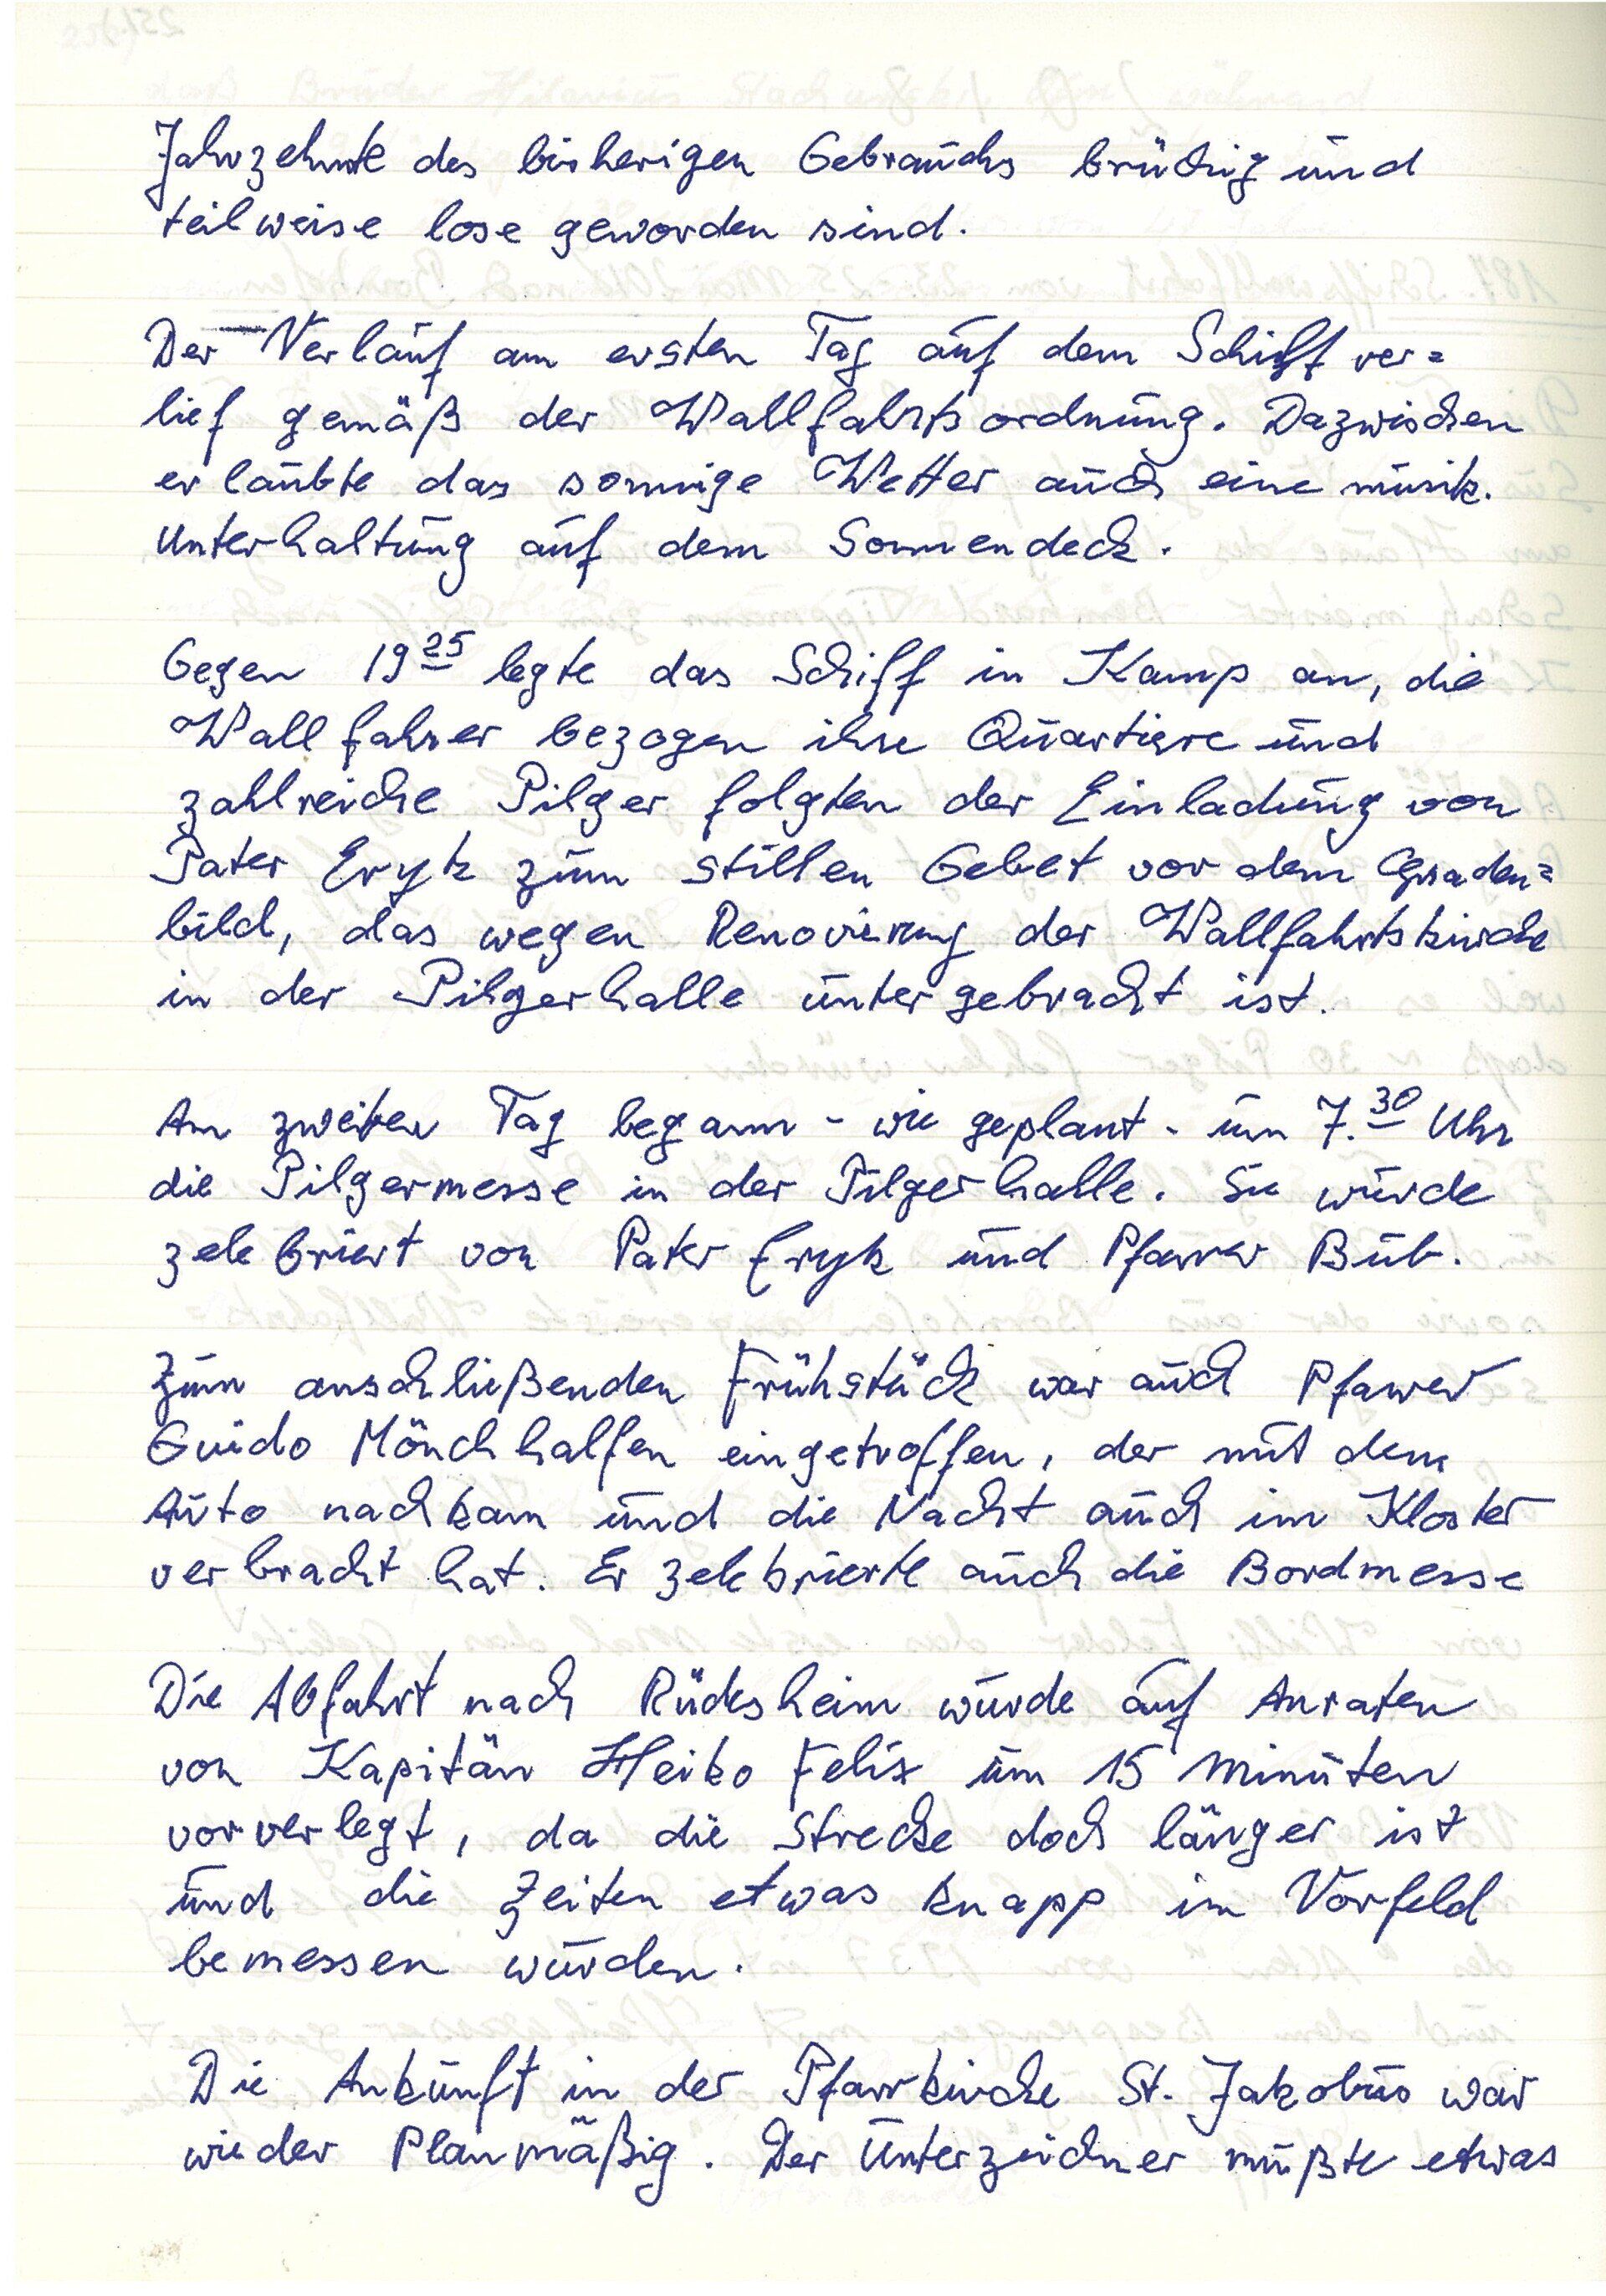 Jahrzehnte des bisherigen Gebrauchs brüchig und
teilweise lose geworden sind.
Der Verlauf am ersten Tag auf dem Schiff ver=
lief gemäß der Wallfahrtsordnung. Dazwischen
erlaubte das sonnige Wetter auch eine musik.
Unterhaltung auf dem Sonnendeck.
Gegen 19 25 legte das Schiff in Kamp an, die
Wallfahrer bezogen ihre Quartiere und
zahlreiche Pilger folgten der Einladung von
Pater Eryk zum stillen Gebet vor dem Gnaden=
bild, das wegen Renovierung der Wallfahrtskirche
in der Pilgerhalle untergebracht ist.
Am zweiten Tag begann - wie geplant - um 7.30 Uhr
die Pilgermesse in der Pilgerhalle. Sie wurde
zelebriert von Pater Eryk und Pfarrer Bub.
Zum anschließenden Frühstück war auch Pfarrer
Guido Mönchhalfen eingetroffen, der mit dem
Auto nachkam und die Nacht auch im Kloster
verbracht hat. Er zelebrierte auch die Bordmesse
Die Abfahrt nach Rüdesheim wurde auf Anraten
von Kapitän Heiko Felix um 15 Minuten
vorverlegt, da die Strecke doch länger ist
und die Zeiten etwas knapp im Vorfeld
bemessen wurden.
Die Ankunft in der Pfarrkirche St. Jakobus war
wieder Planmäßig. Der Unterzeichner mußte etwas